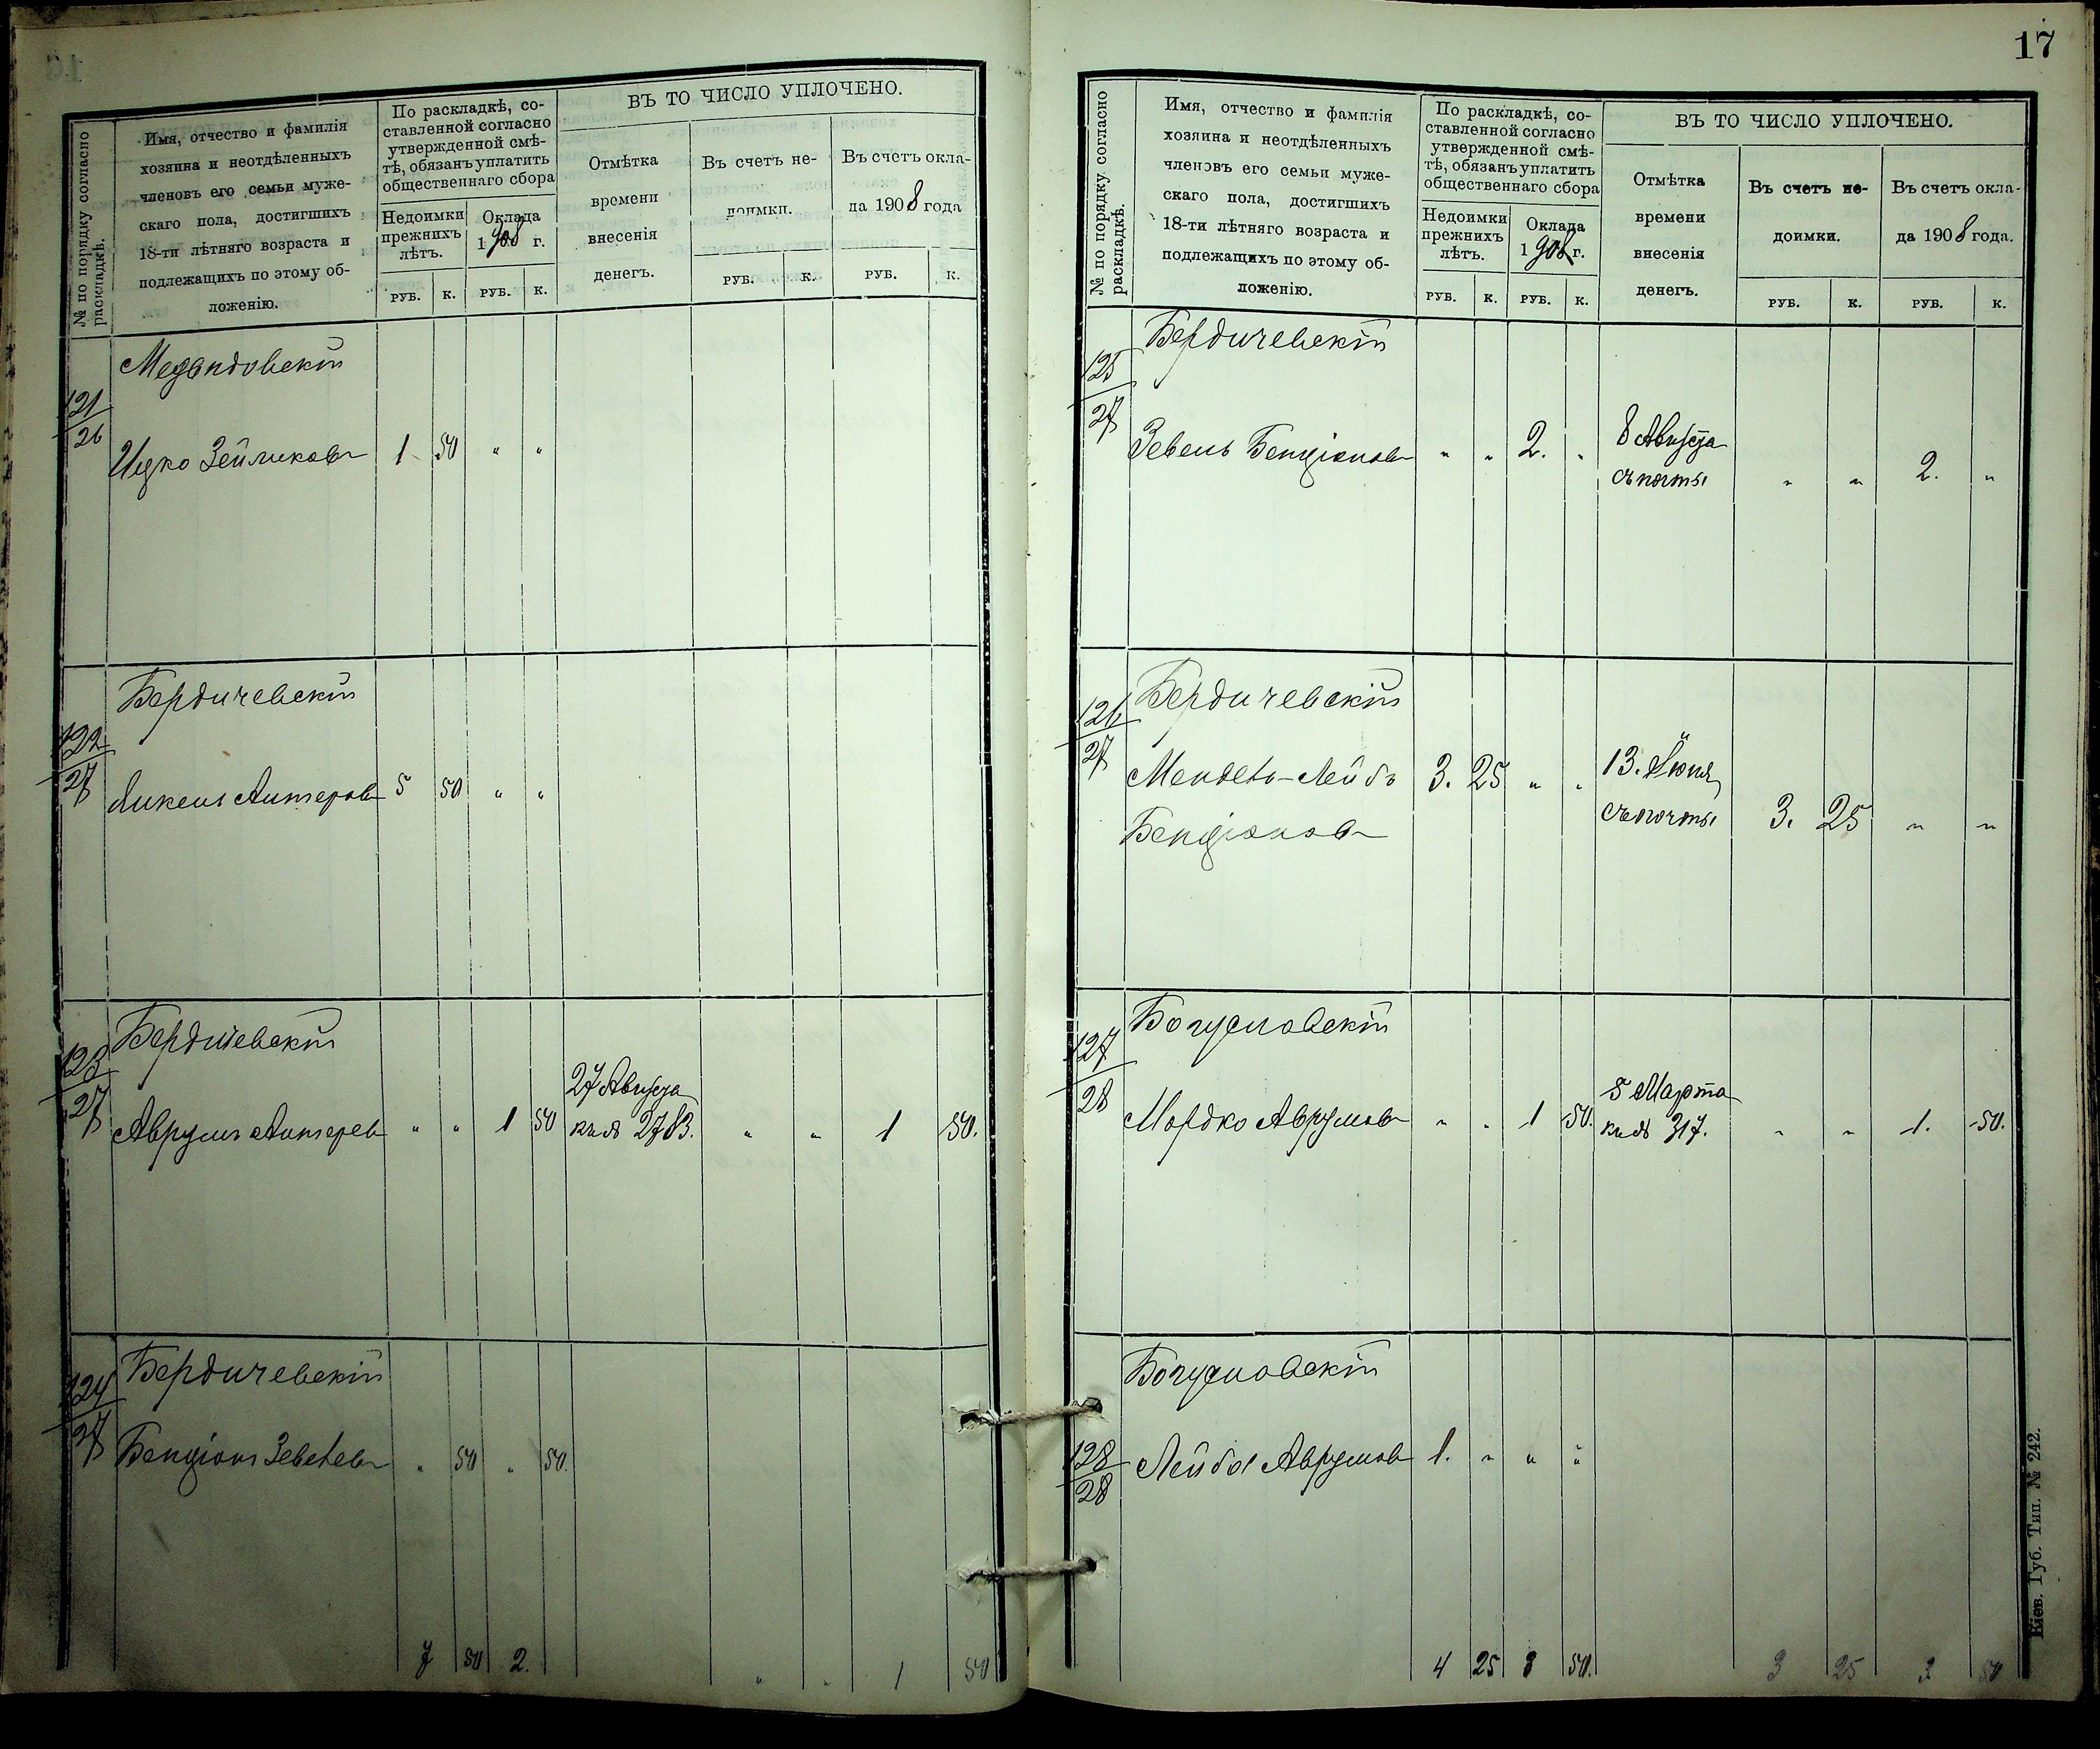 № по порядку согласно
раскладкѣ.
Имя, отчество и фамилія
хозяина и неотдѣленныхъ
членовъ его семьи муже-
скаго пола, достигшихъ
18-ти лѣтняго возраста и
подлежащихъ по этому об-
ложенію.
По раскладкѣ, со-
ставленной согласно
утвержденной смѣ-
тѣ, обязанъ уплатить
общественнаго сбора
Недоимки
прежнихъ
лѣтъ.
Оклада
1908 г.
РУБ. К. РУБ. К.
ВЪ ТО ЧИСЛО УПЛОЧЕНО.
Отмѣтка
времени
внесенія
денегъ.
Въ счетъ не-
доимки.
Въ счетъ окла-
да 1908 года
РУБ. К. РУБ. К.
121
26
Ицко Зейликовъ 1 50 " "
Бердичевскій
122
27
5 50 " "
Бердичевскій
123
27
27 Августа
Аврумъ Антеревъ " " 1 50 кв № 2783. " " 1 50.
Бердичевскій
124
27
Бенціонъ Зевелевъ " 50 " 50.
7 50 2. " " 1 50
17
№ по порядку согласно
раскладкѣ.
Имя, отчество и фамилія
хозяина и неотдѣленныхъ
членовъ его семьи муже-
скаго пола, достигшихъ
18-ти лѣтняго возраста и
подлежащихъ по этому об-
ложенію.
По раскладкѣ, со-
ставленной согласно
утвержденной смѣ-
тѣ, обязанъ уплатить
общественнаго сбора
Недоимки
прежнихъ
лѣтъ.
Оклада
1908 г.
РУБ. К. РУБ. К.
ВЪ ТО ЧИСЛО УПЛОЧЕНО.
Отмѣтка
времени
внесенія
денегъ.
Въ счетъ не-
доимки.
Въ счетъ окла-
да 1908 года.
РУБ. К. РУБ. К.
Бердичевскій
125
27
8 Августа
Зевель Бенціоновъ " " 2. "
съ почты " " 2. "
Бердичевскій
126
27
13. Июня
Мендель-Лейбъ 3. 25 " "
съ почты 3. 25 " "
Бенціоновъ
Богуславскій
127
28
5 Марта
Мордко Аврумовъ " " 1 50. кв № 317. " " 1. 50.
Богуславскій
128
28
Лейба Аврумовъ 1. " " "
4 25 3 50. 3 25 3 50
Кіев. Губ. Тип. № 242.